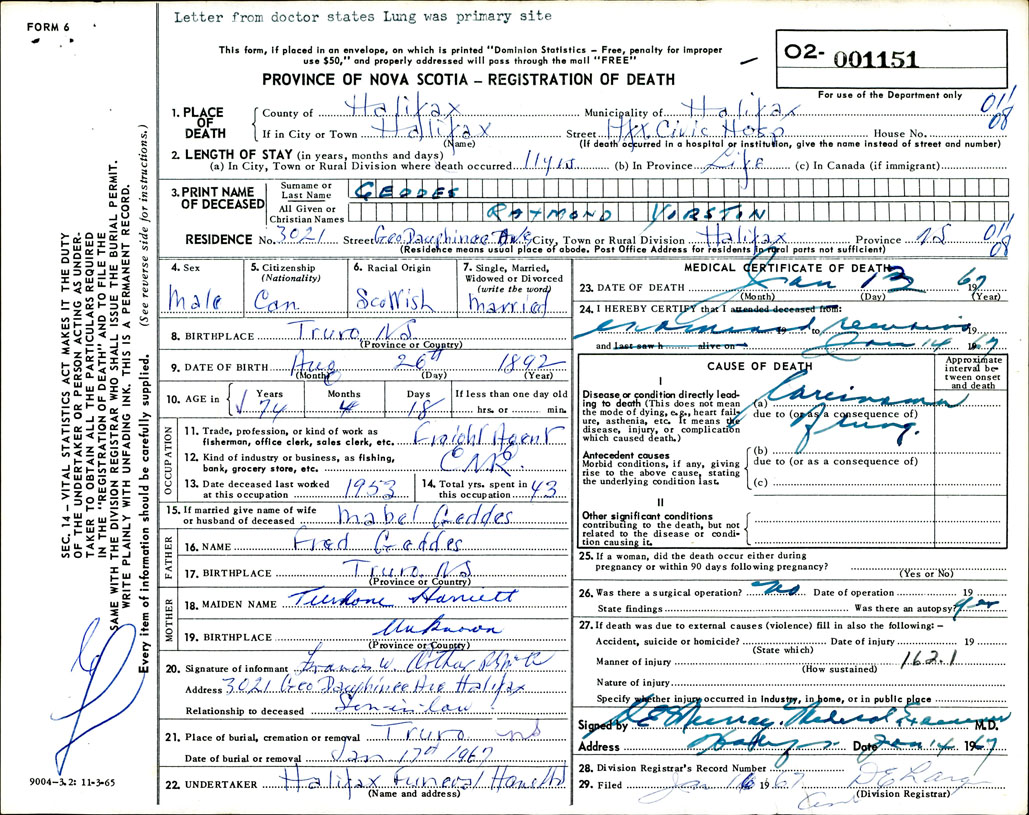 Letter from doctor states Lung was primary site
FORM 6
This form, if placed in an envelope, on which is printed "Dominion Statistics – Free, penalty for improper
use $50," and properly addressed will pass through the mail "FREE"
O2- 001151
PROVINCE OF NOVA SCOTIA – REGISTRATION OF DEATH
For use of the Department only
1. PLACE OF DEATH
County of Halifax Municipality of Halifax 011
08
If in City or Town Halifax Street Hfx. Civic Hosp House No.
(Name) (If death occurred in a hospital or institution, give the name instead of street and number)
2. LENGTH OF STAY (in years, months and days)
(a) In City, Town or Rural Division where death occurred 11 yrs (b) In Province Life (c) In Canada (if immigrant)
3. PRINT NAME OF DECEASED
Surname or Last Name GEDDES
All Given or Christian Names RAYMOND YORSTON
RESIDENCE No. 3021 Street Geo Dauphinee Ave City, Town or Rural Division Halifax Province NS 011
08
(Residence means usual place of abode. Post Office Address for residents in rural parts not sufficient)
4. Sex Male
5. Citizenship (Nationality) Can
6. Racial Origin Scottish
7. Single, Married, Widowed or Divorced (write the word) Married
8. BIRTHPLACE Truro NS
(Province or Country)
9. DATE OF BIRTH Aug 26th 1892
(Month) (Day) (Year)
10. AGE in Years 74 Months 4 Days 18 If less than one day old hrs. or min.
OCCUPATION
11. Trade, profession, or kind of work as fisherman, office clerk, sales clerk, etc. Freight Agent
12. Kind of industry or business, as fishing, bank, grocery store, etc. CNR
13. Date deceased last worked at this occupation 1953
14. Total yrs. spent in this occupation 43
15. If married give name of wife or husband of deceased Mabel Geddes
FATHER
16. NAME Fred Geddes
17. BIRTHPLACE Truro NS
(Province or Country)
MOTHER
18. MAIDEN NAME Harriett
19. BIRTHPLACE Unknown
(Province or Country)
20. Signature of informant Francis W.
Address 3021 Geo Dauphinee Ave Halifax
Relationship to deceased Son-in-law
21. Place of burial, cremation or removal Truro NS
Date of burial or removal Jan 17th 1967
22. UNDERTAKER Halifax Funeral Home
(Name and address)
MEDICAL CERTIFICATE OF DEATH
23. DATE OF DEATH Jan 13 1967
(Month) (Day) (Year)
24. I HEREBY CERTIFY that I attended deceased from:
examined 19 to 19
and last saw h alive on Jan 14 1967
CAUSE OF DEATH
Approximate interval between onset and death
I
Disease or condition directly leading to death (This does not mean the mode of dying, e.g., heart failure, asthenia, etc. It means the disease, injury, or complication which caused death.)
(a) Carcinoma
due to (or as a consequence of)
of lung.
Antecedent causes
Morbid conditions, if any, giving rise to the above cause, stating the underlying condition last.
(b)
due to (or as a consequence of)
(c)
II
Other significant conditions
contributing to the death, but not related to the disease or condition causing it.
25. If a woman, did the death occur either during
pregnancy or within 90 days following pregnancy?
(Yes or No)
26. Was there a surgical operation? No Date of operation 19
State findings Was there an autopsy? Yes
27. If death was due to external causes (violence) fill in also the following: –
Accident, suicide or homicide? Date of injury 19
(State which)
Manner of injury 162.1
(How sustained)
Nature of injury
Specify whether injury occurred in Industry, in home, or in public place
Signed by Murray, Medical Examiner M.D.
Address Date Jan 14 1967
28. Division Registrar's Record Number
29. Filed Jan 16 1967
(Division Registrar)
SEC. 14 – VITAL STATISTICS ACT MAKES IT THE DUTY
OF THE UNDERTAKER OR PERSON ACTING AS UNDER-
TAKER TO OBTAIN ALL THE PARTICULARS REQUIRED
IN THE "REGISTRATION OF DEATH" AND TO FILE THE
SAME WITH THE DIVISION REGISTRAR WHO SHALL ISSUE THE BURIAL PERMIT.
WRITE PLAINLY WITH UNFADING INK. THIS IS A PERMANENT RECORD.
Every item of information should be carefully supplied. (See reverse side for instructions.)
9004-3.2: 11-3-65